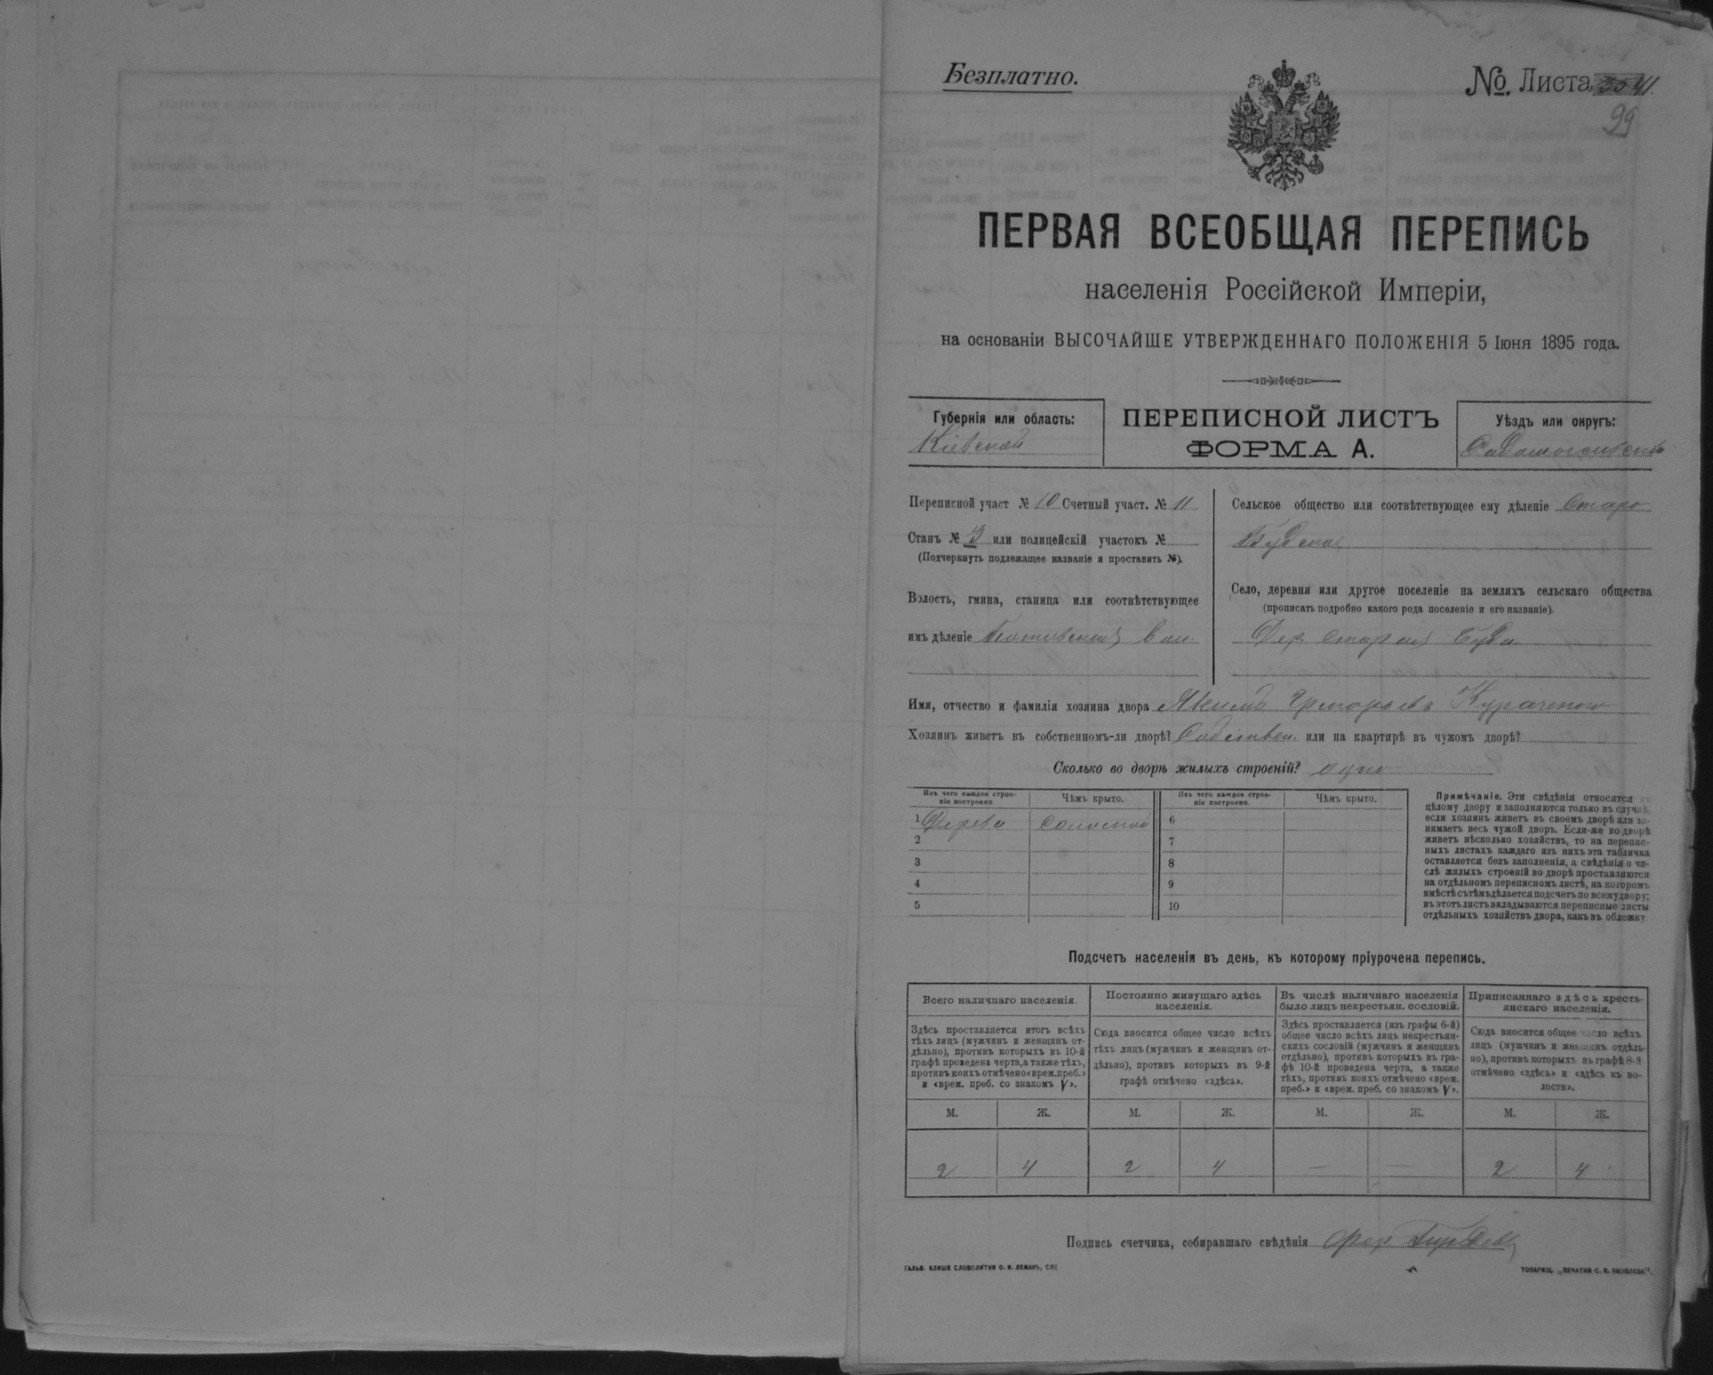 Безплатно.
№. Листа 41.
99
ПЕРВАЯ ВСЕОБЩАЯ ПЕРЕПИСЬ
населенія Россійской Имперіи,
на основаніи ВЫСОЧАЙШЕ УТВЕРЖДЕННАГО ПОЛОЖЕНІЯ 5 Іюня 1895 года.
Губернія или область:
Кіевской
ПЕРЕПИСНОЙ ЛИСТЪ
ФОРМА А.
Уѣздъ или округъ:
Переписной участ № 10 Счетный участ. № 11
Станъ № 3 или полицейскій участокъ №
(Подчеркнуть подлежащее названіе и проставить №).
Волость, гмина, станица или соотвѣтствующее
имъ дѣленіе Вол.
Сельское общество или соотвѣтствующее ему дѣленіе Старо
Будское
Село, деревня или другое поселеніе на земляхъ сельскаго общества
(прописать подробно какого рода поселеніе и его названіе).
Дер. Старая Буда
Имя, отчество и фамилія хозяина двора Якимъ Григорьевъ
Хозяинъ живетъ въ собственномъ-ли дворѣ? Собствен. или на квартирѣ въ чужомъ дворѣ?
Сколько во дворѣ жилыхъ строеній? одно
Изъ чего каждое строе-
ніе построено.
Чѣмъ крыто.
1 Дерева соломой
2
3
4
5
Изъ чего каждое строе-
ніе построено.
Чѣмъ крыто.
6
7
8
9
10
Примѣчаніе. Эти свѣдѣнія относятся къ
цѣлому двору и заполняются только въ случаѣ,
если хозяинъ живетъ въ своемъ дворѣ или за-
нимаетъ весь чужой дворъ. Если-же во дворѣ
живетъ нѣсколько хозяйствъ, то на перепис-
ныхъ листахъ каждаго изъ нихъ эта табличка
оставляется безъ заполненія, а свѣдѣнія о чи-
слѣ жилыхъ строеній во дворѣ проставляются
на отдѣльномъ переписномъ листѣ, на которомъ
вмѣстѣ съ тѣмъ дѣлается подсчетъ по всему двору;
въ этотъ листъ вкладываются переписные листы
отдѣльныхъ хозяйствъ двора, какъ въ обложку.
Подсчетъ населенія въ день, къ которому пріурочена перепись.
Всего наличнаго населенія.
Здѣсь проставляется итогъ всѣхъ
тѣхъ лицъ (мужчинъ и женщинъ от-
дѣльно), противъ которыхъ въ 10-й
графѣ проведена черта, а также тѣхъ,
противъ коихъ отмѣчено «врем. преб.»
и «врем. преб. со знакомъ V».
М. Ж.
2 4
Постоянно живущаго здѣсь
населенія.
Сюда вносится общее число всѣхъ
тѣхъ лицъ (мужчинъ и женщинъ от-
дѣльно), противъ которыхъ въ 9-й
графѣ отмѣчено «здѣсь».
М. Ж.
2 4
Въ числѣ наличнаго населенія
было лицъ некрестьян. сословій.
Здѣсь проставляется (изъ графы 6-й)
общее число всѣхъ лицъ некрестьян-
скихъ сословій (мужчинъ и женщинъ
отдѣльно), противъ которыхъ въ гра-
фѣ 10-й проведена черта, а также
тѣхъ, противъ коихъ отмѣчено «врем.
преб.» и «врем. преб. со знакомъ V».
М. Ж.
— —
Приписаннаго здѣсь кресть-
янскаго населенія.
Сюда вносится общее число всѣхъ
лицъ (мужчинъ и женщинъ отдѣль-
но), противъ которыхъ въ графѣ 8-й
отмѣчено «здѣсь» и «здѣсь въ во-
лости».
М. Ж.
2 4
Подпись счетчика, собиравшаго свѣдѣнія
ГАЛЬВ. КЛИШЕ СЛОВОЛИТНИ О. И. ЛЕМАНЪ, СПБ.
ТОВАРИЩ. „ПЕЧАТНЯ С. П. ЯКОВЛЕВА".